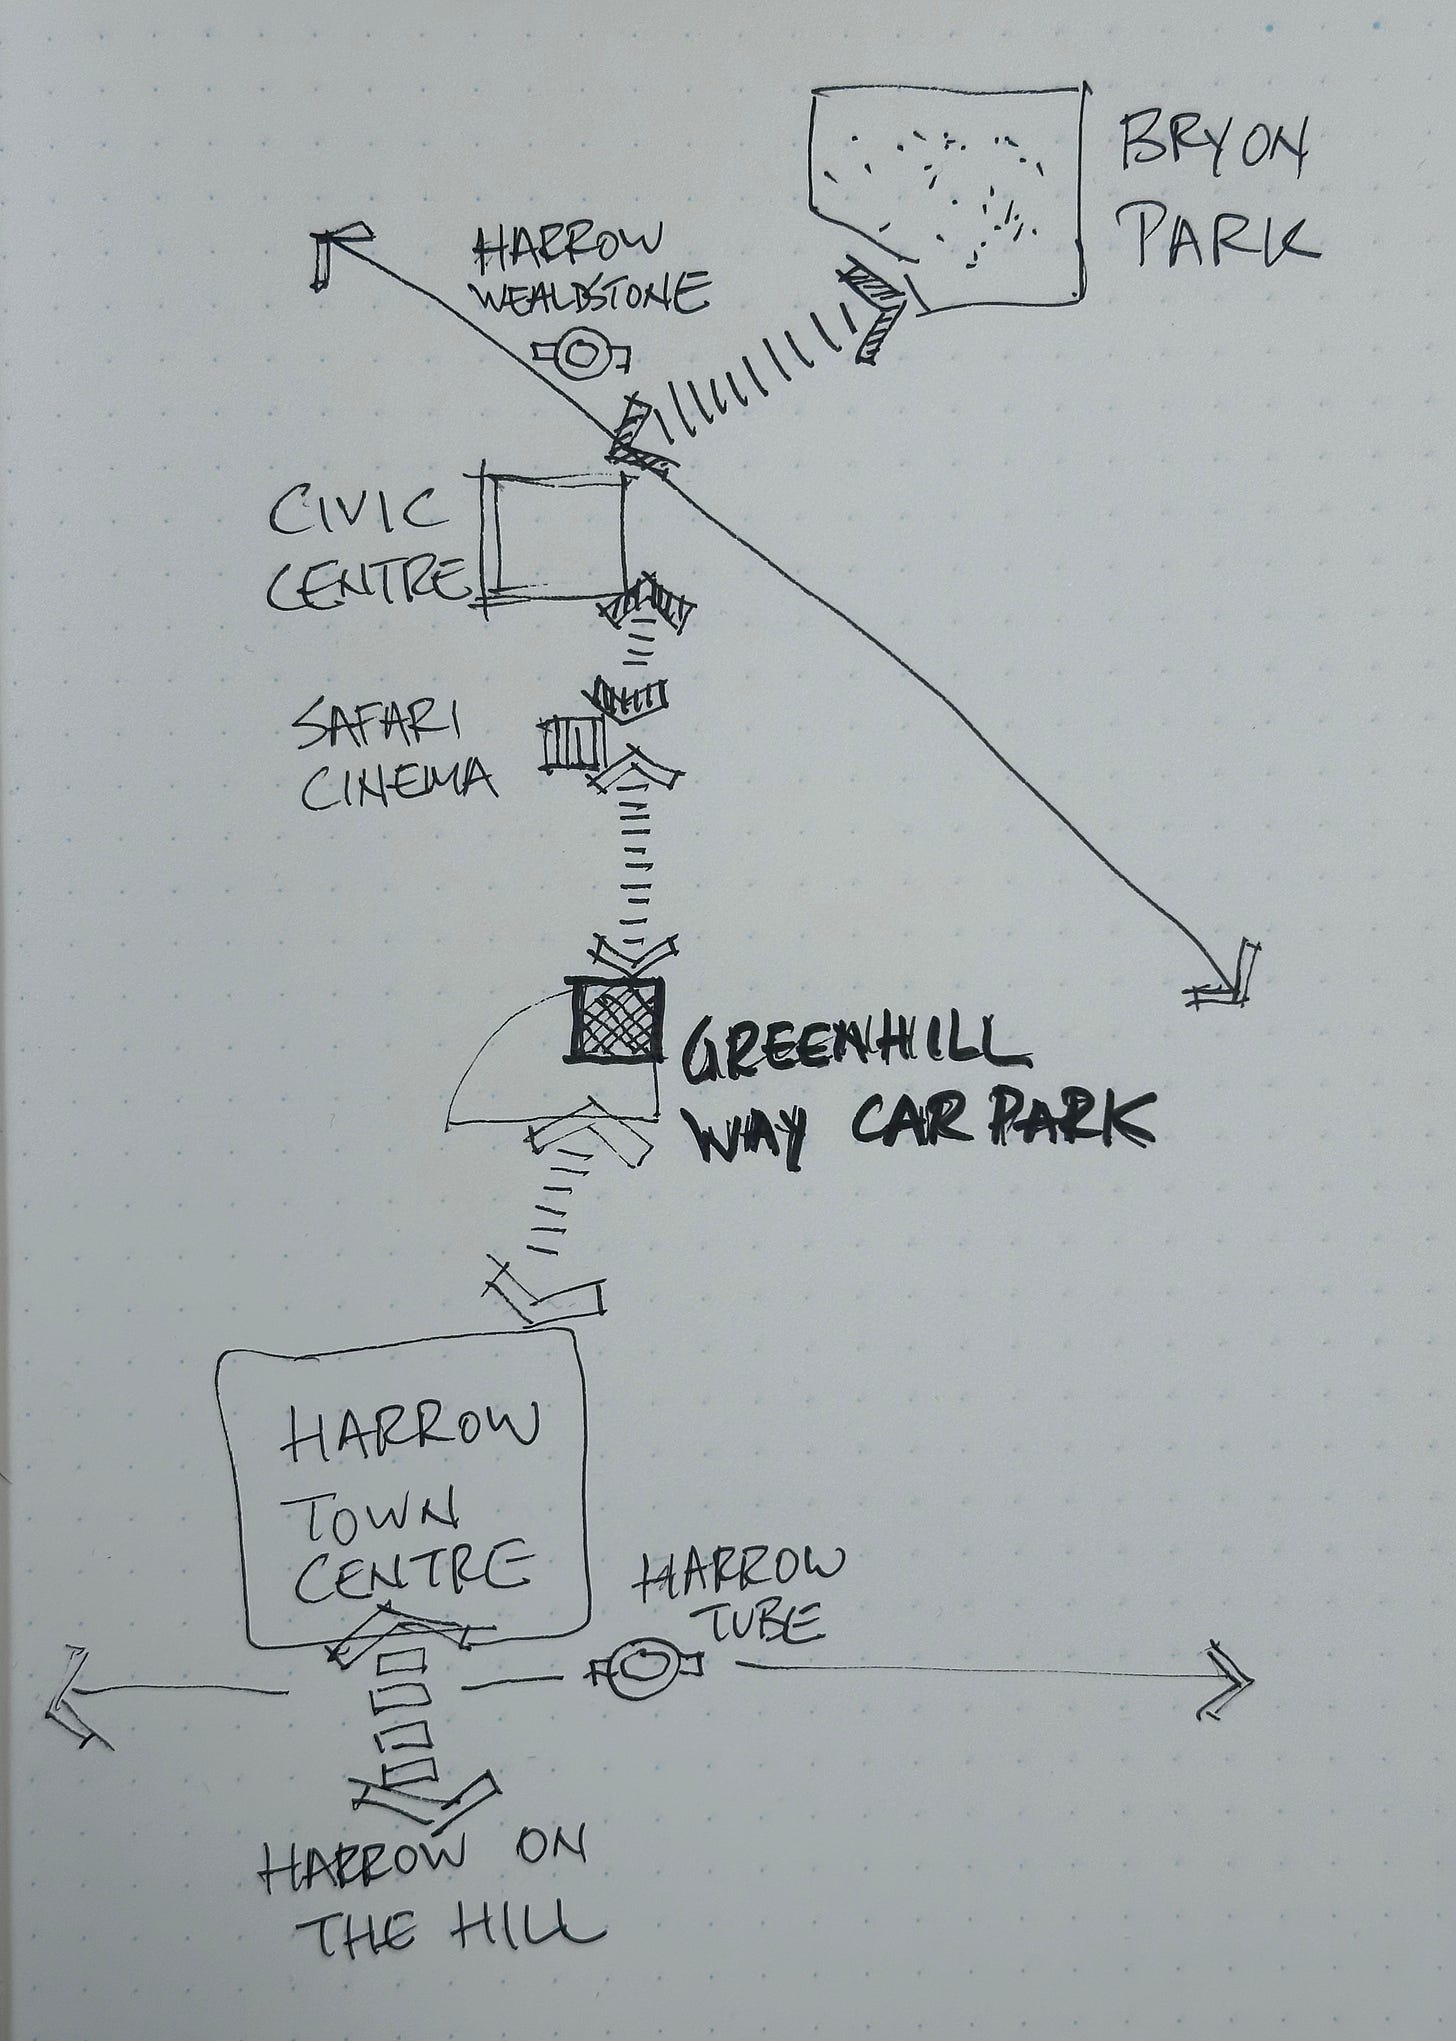 BRYON
PARK
HARROW
WEALDSTONE
CIVIC
CENTRE
SAFARI
CINEMA
GREENHILL
WAY CAR PARK
HARROW
TOWN
CENTRE
HARROW
TUBE
HARROW ON
THE HILL